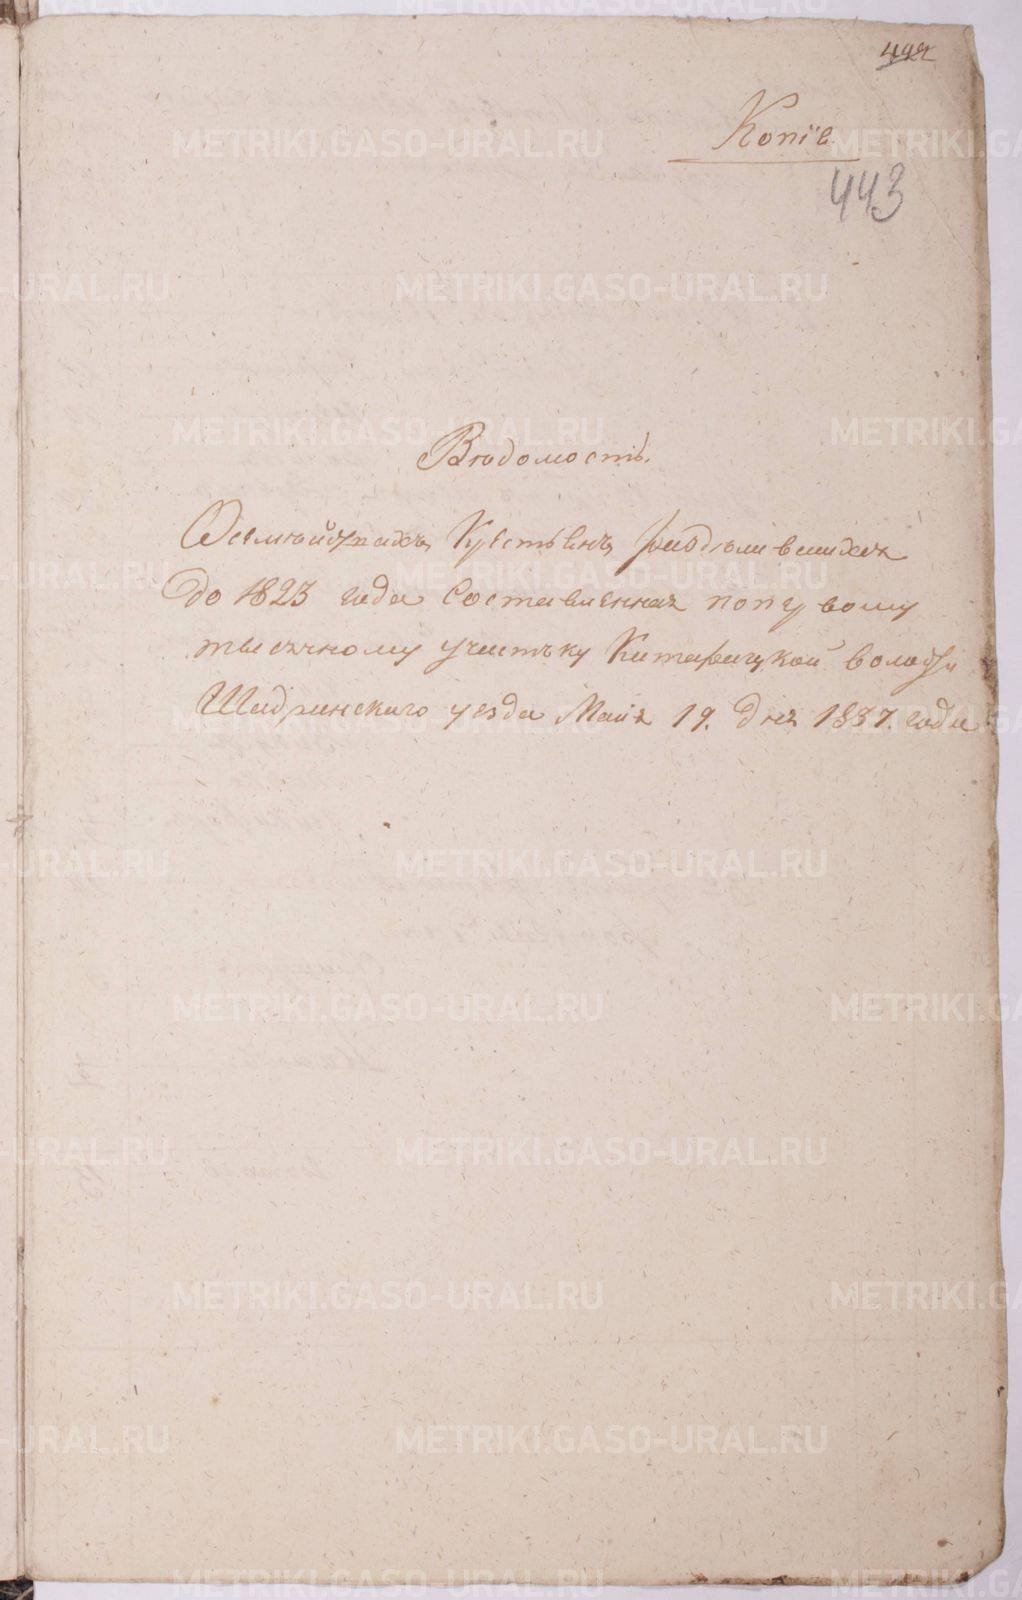 492
Копіе
443
Вѣдомость.
О семѣйствахъ Крестьянъ раздѣлившихся
до 1823 года Составленная попервому
тысячному участку волости
Шадринского уезда Маія 19. дня 1837. года
METRIKI.GASO-URAL.RU